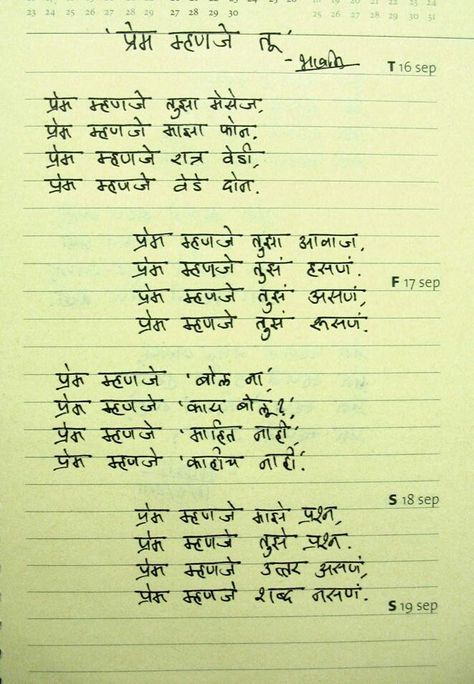 23 24 25 26 27 28 29
'प्रेम म्हणजे तू'
T 16 sep
प्रेम म्हणजे तुझा मेसेज,
प्रेम म्हणजे माझा फोन.
प्रेम म्हणजे रात्र वेडी,
प्रेम म्हणजे वेडे दोन.
प्रेम म्हणजे तुझा आवाज,
प्रेम म्हणजे तुझं हसणं.
F 17 sep
प्रेम म्हणजे तुझं असणं,
प्रेम म्हणजे तुझं रूसणं.
प्रेम म्हणजे 'बोल ना',
प्रेम म्हणजे 'काय बोलू?',
प्रेम म्हणजे 'माहित नाही',
प्रेम म्हणजे 'काहीच नाही'.
S 18 sep
प्रेम म्हणजे माझे प्रश्न,
प्रेम म्हणजे तुझे प्रश्न.
प्रेम म्हणजे उत्तर असणं,
प्रेम म्हणजे शब्द नसणं.
S 19 sep